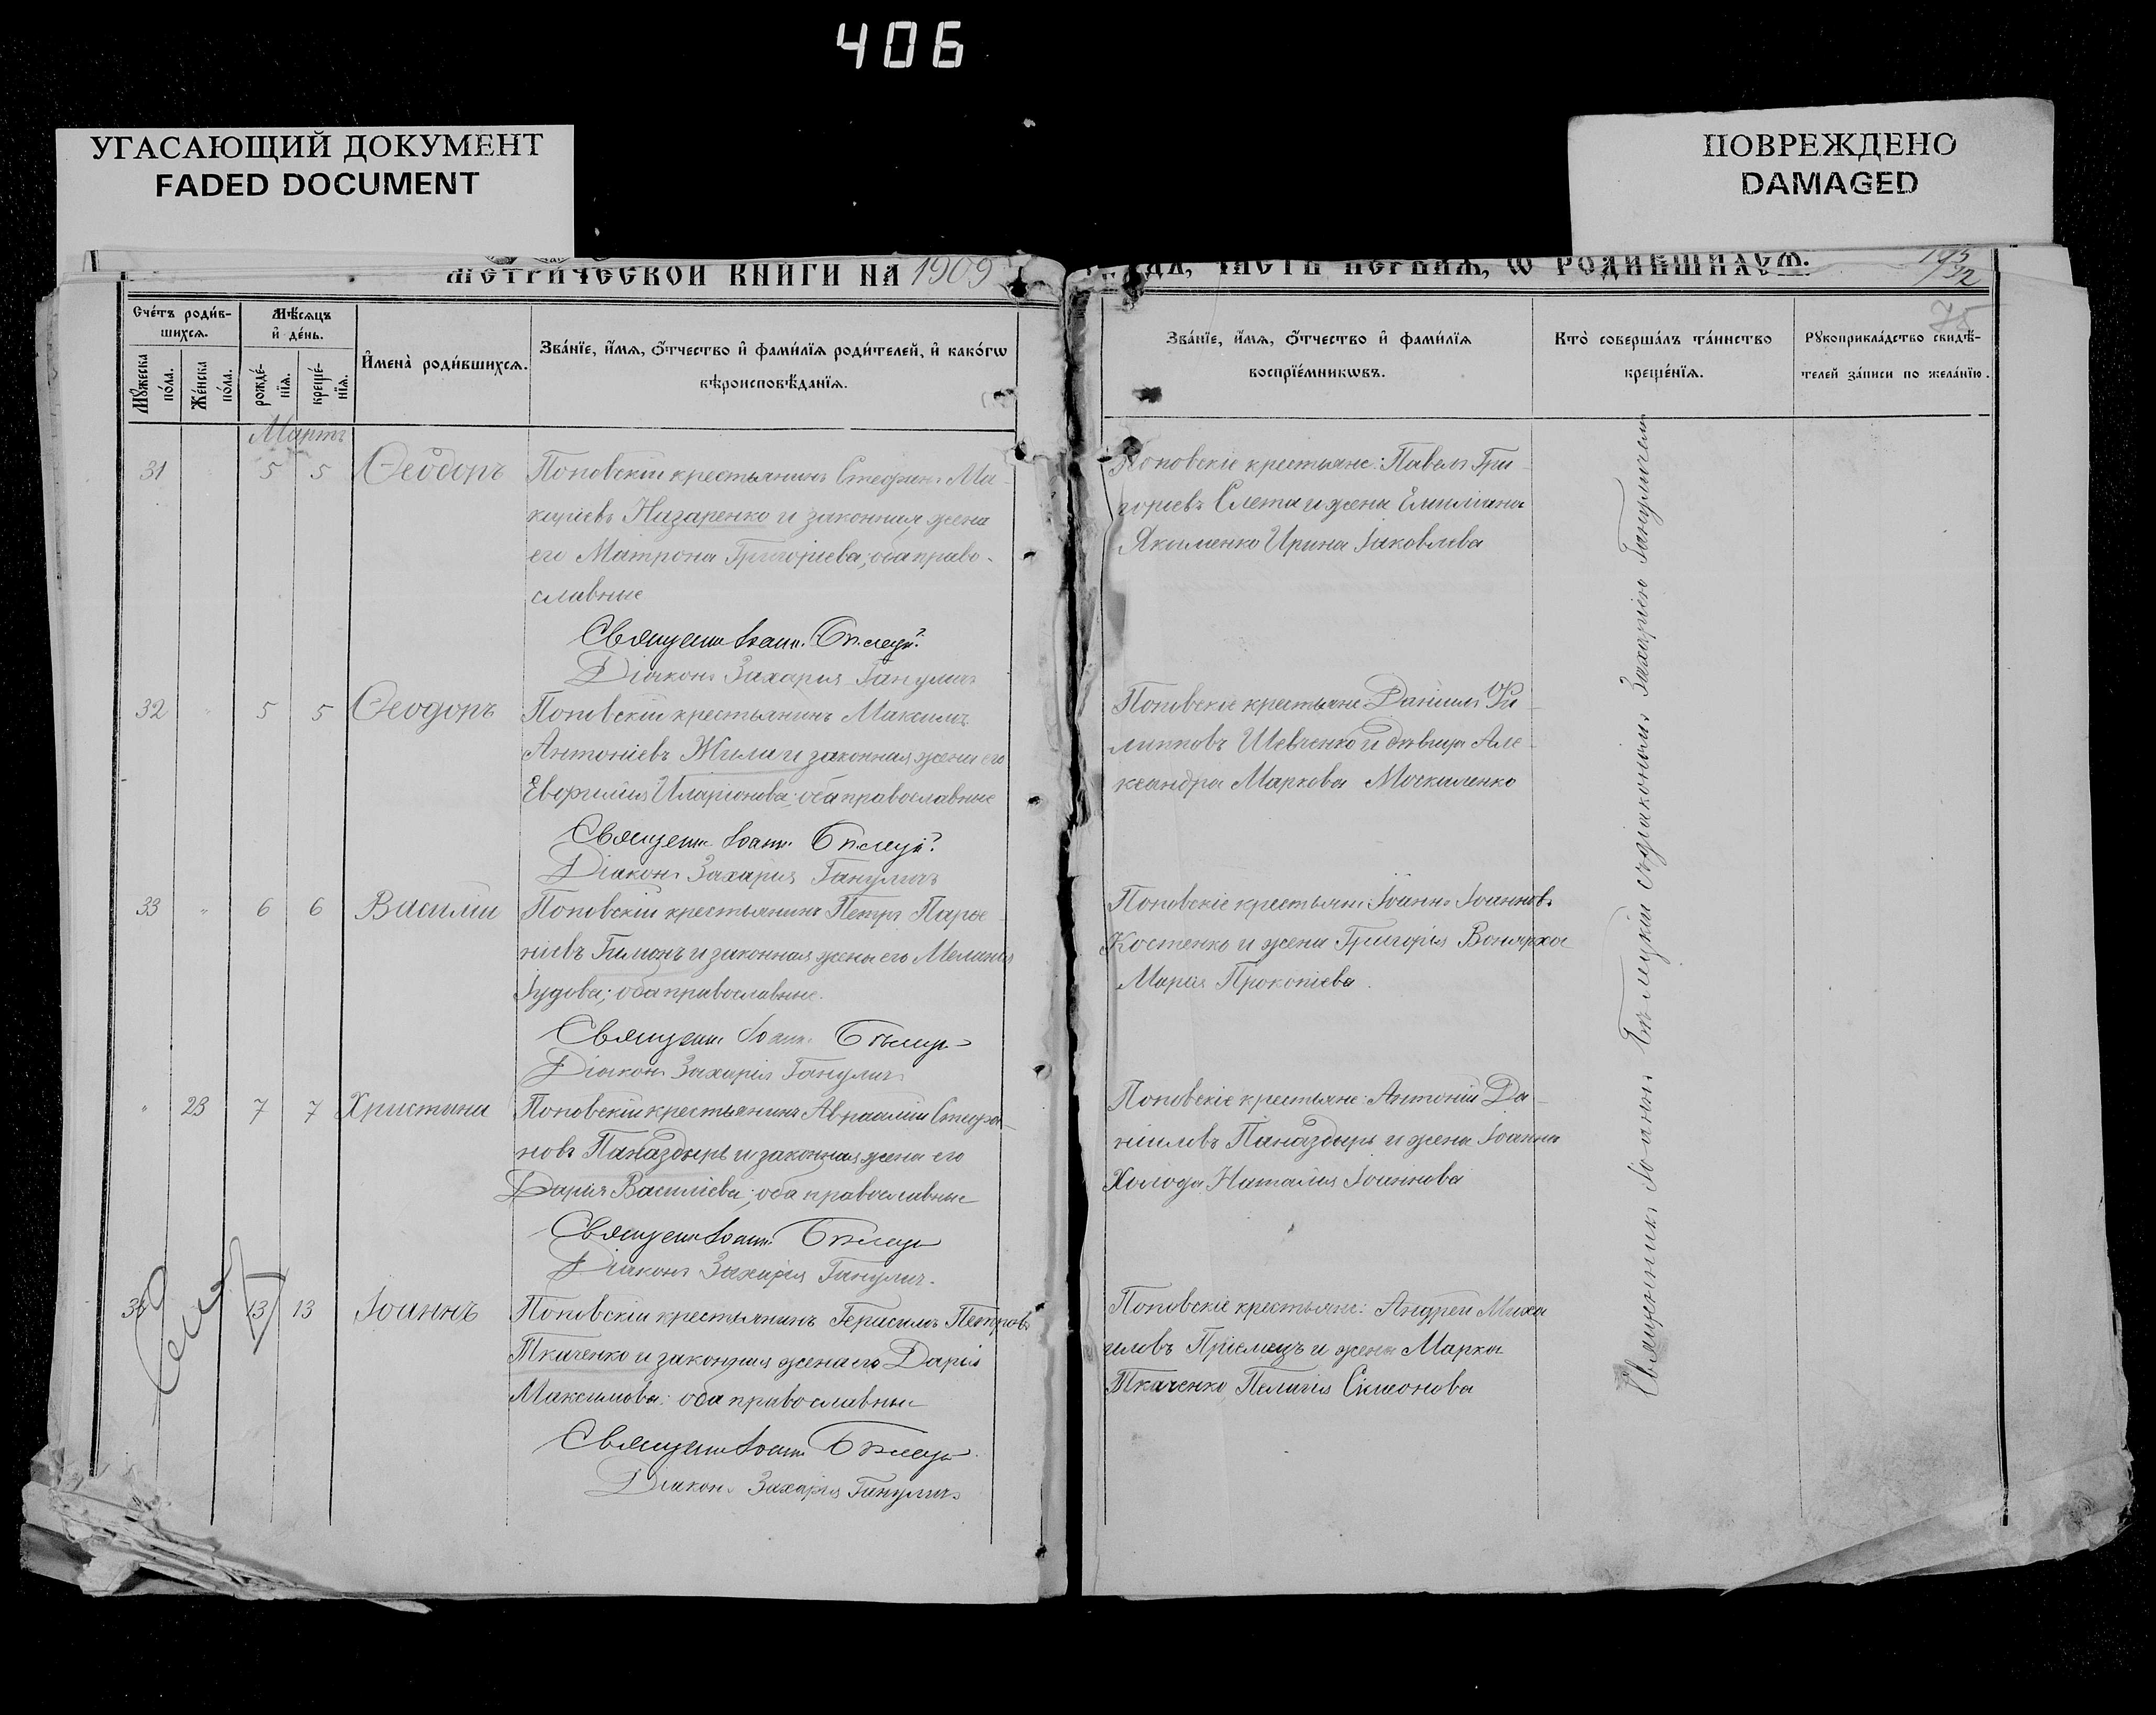 406
УГАСАЮЩИЙ ДОКУМЕНТ
FADED DOCUMENT
ПОВРЕЖДЕНО
DAMAGED
МЕТРИЧЕСКОЙ КНИГИ НА 1909
ГОДА, ЧАСТЬ ПЕРВАЯ, Ѡ РОДИВШИХСѦ.
195
32
75
Счéтъ роди́вшихсѧ.
Мѣ́сѧцъ и҆ дéнь.
Мꙋ́жеска пóла.
Жéнска пóла.
рождéнїѧ.
крещéнїѧ.
И҆менà роди́вшихсѧ.
Звáнїе, и҆́мѧ, ѻ҆́тчество и҆ фами́лїѧ роди́телей, и҆ какóгѡ
вѣроисповѣ́данїѧ.
Звáнїе, и҆́мѧ, ѻ҆́тчество и҆ фами́лїѧ
воспрїéмникѡвъ.
Ктò совершáлъ тáинство
крещéнїѧ.
Рꙋкоприклáдство свидѣ́-
телей зáписи по желáнїю.
Мартъ
31 5 5 Ѳеодоръ Поповскій крестьянинъ Стефанъ Ми-
Назаренко и законная жена
его Матрона Григоріева; оба право-
славные
Священн. Іоанн. Бѣлецк.
Діаконъ Захарія Ганулич
Поповскіе крестьяне: Павелъ Гри-
горіевъ Слета и жена Емиліана
Якименко Ирина Іаковлева
32 " 5 5 Ѳеодоръ Поповскій крестьянинъ Максимъ
Антоніевъ Жила и законная жена его
Евфимія Иларіонова; оба православные
Священн. Іоанн. Бѣлецк.
Діаконъ Захарія Ганулич
Поповскіе крестьяне Даніилъ Фи-
липповъ Шевченко и дѣвица Але-
ксандра Маркова Москаленко
33 " 6 6 Василій Поповскій крестьянинъ Петръ Парѳе-
ніевъ и законная жена его Меланія
Іудова; оба православные.
Священн. Іоанн. Бѣлецк.
Діаконъ Захарія Ганулич
Поповскіе крестьяне: Іоаннъ Іоанновъ
Костенко и жена Григорія
Марія Прокопіева.
" 23 7 7 Христина Поповскій крестьянинъ Авраамій Стефа-
новъ Паназдырь и законная жена его
Дарія Василіева; оба православные
Священн. Іоанн. Бѣлецк.
Діаконъ Захарія Ганулич.
Поповскіе крестьяне: Антоній Да-
ніиловъ Паназдырь и жена Іоанна
Холода Наталія Іоаннова
34 13 13 Іоаннъ Поповскій крестьянинъ Герасимъ Петровъ
Ткаченко и законная жена его Дарія
Максимова; оба православные
Священн. Іоанн. Бѣлецк.
Діаконъ Захарія Ганулич
Поповскіе крестьяне: Андрей Миха-
иловъ Пріемецъ и жена Марка
Ткаченко, Пелагія Сімеонова
Священникъ Іоаннъ Бѣлецкій съ діакономъ Захаріею Гануличемъ